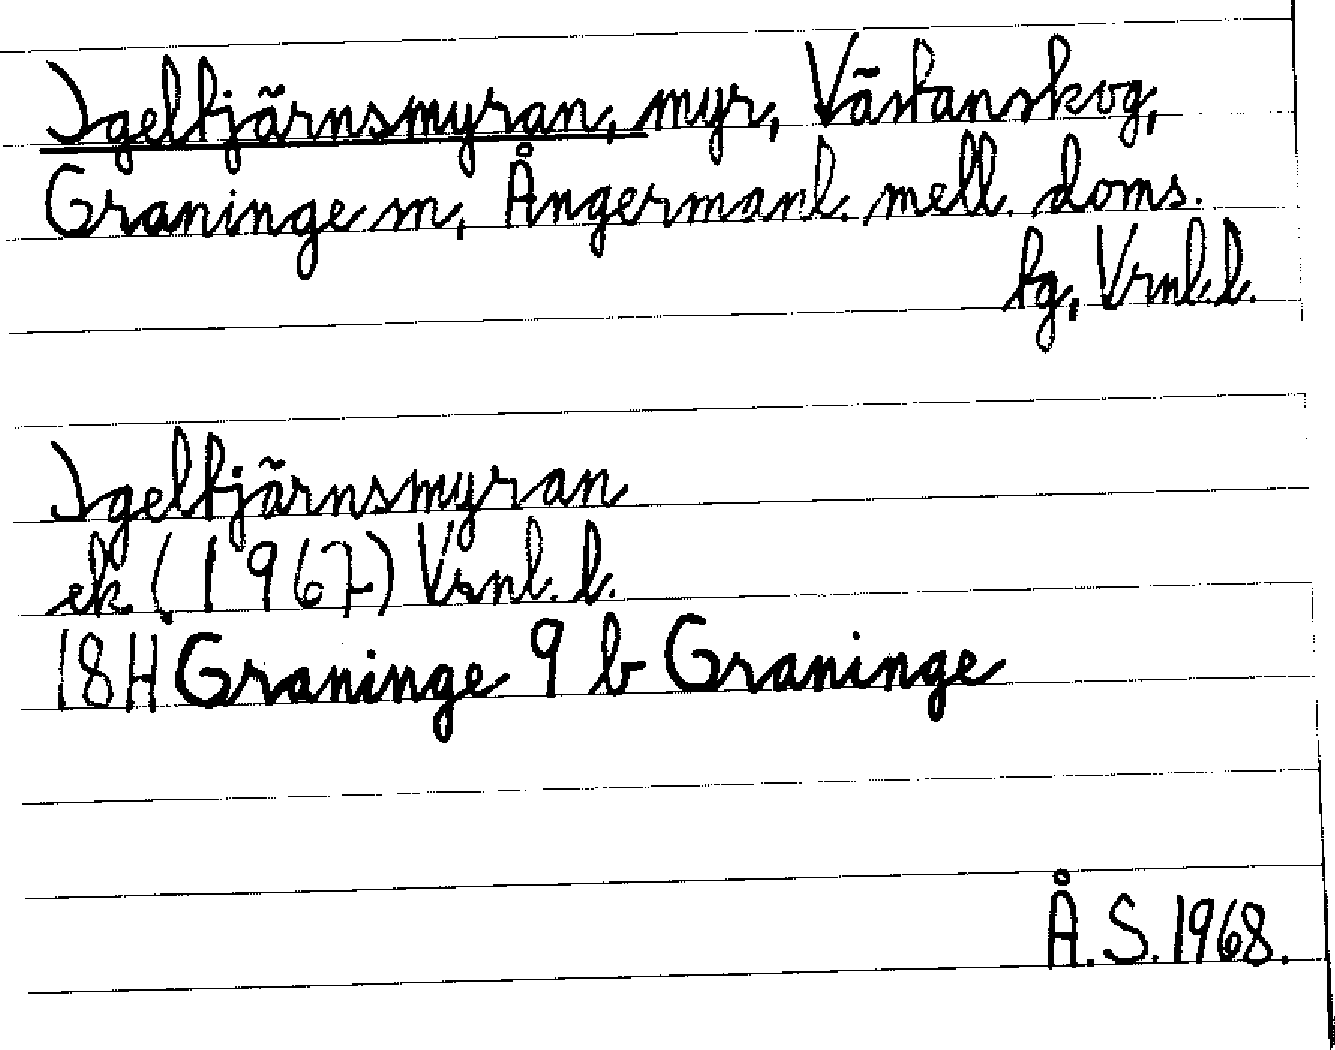 Igeltjärnsmyran, myr, Västanskog,
Graninge sn, Ångermanl. mell. doms.
tg, Vrnl.l.
Igeltjärnsmyran
ek (1967) Vrnl. l.
18H Graninge 9 b Graninge
Å.S. 1968.